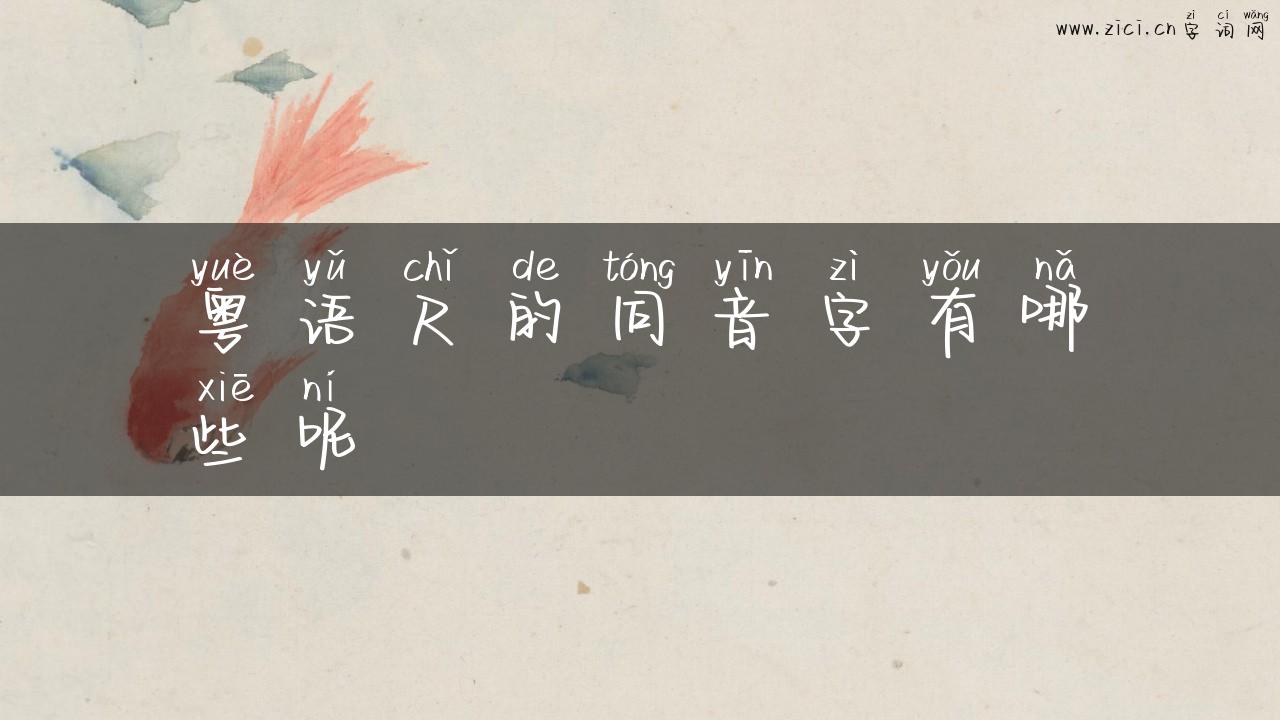 zì cí wǎng
www.zici.cn 字词网
yuè yǔ chǐ de tóng yīn zì yǒu nǎ
粤语尺的同音字有哪
xiē ní
些呢